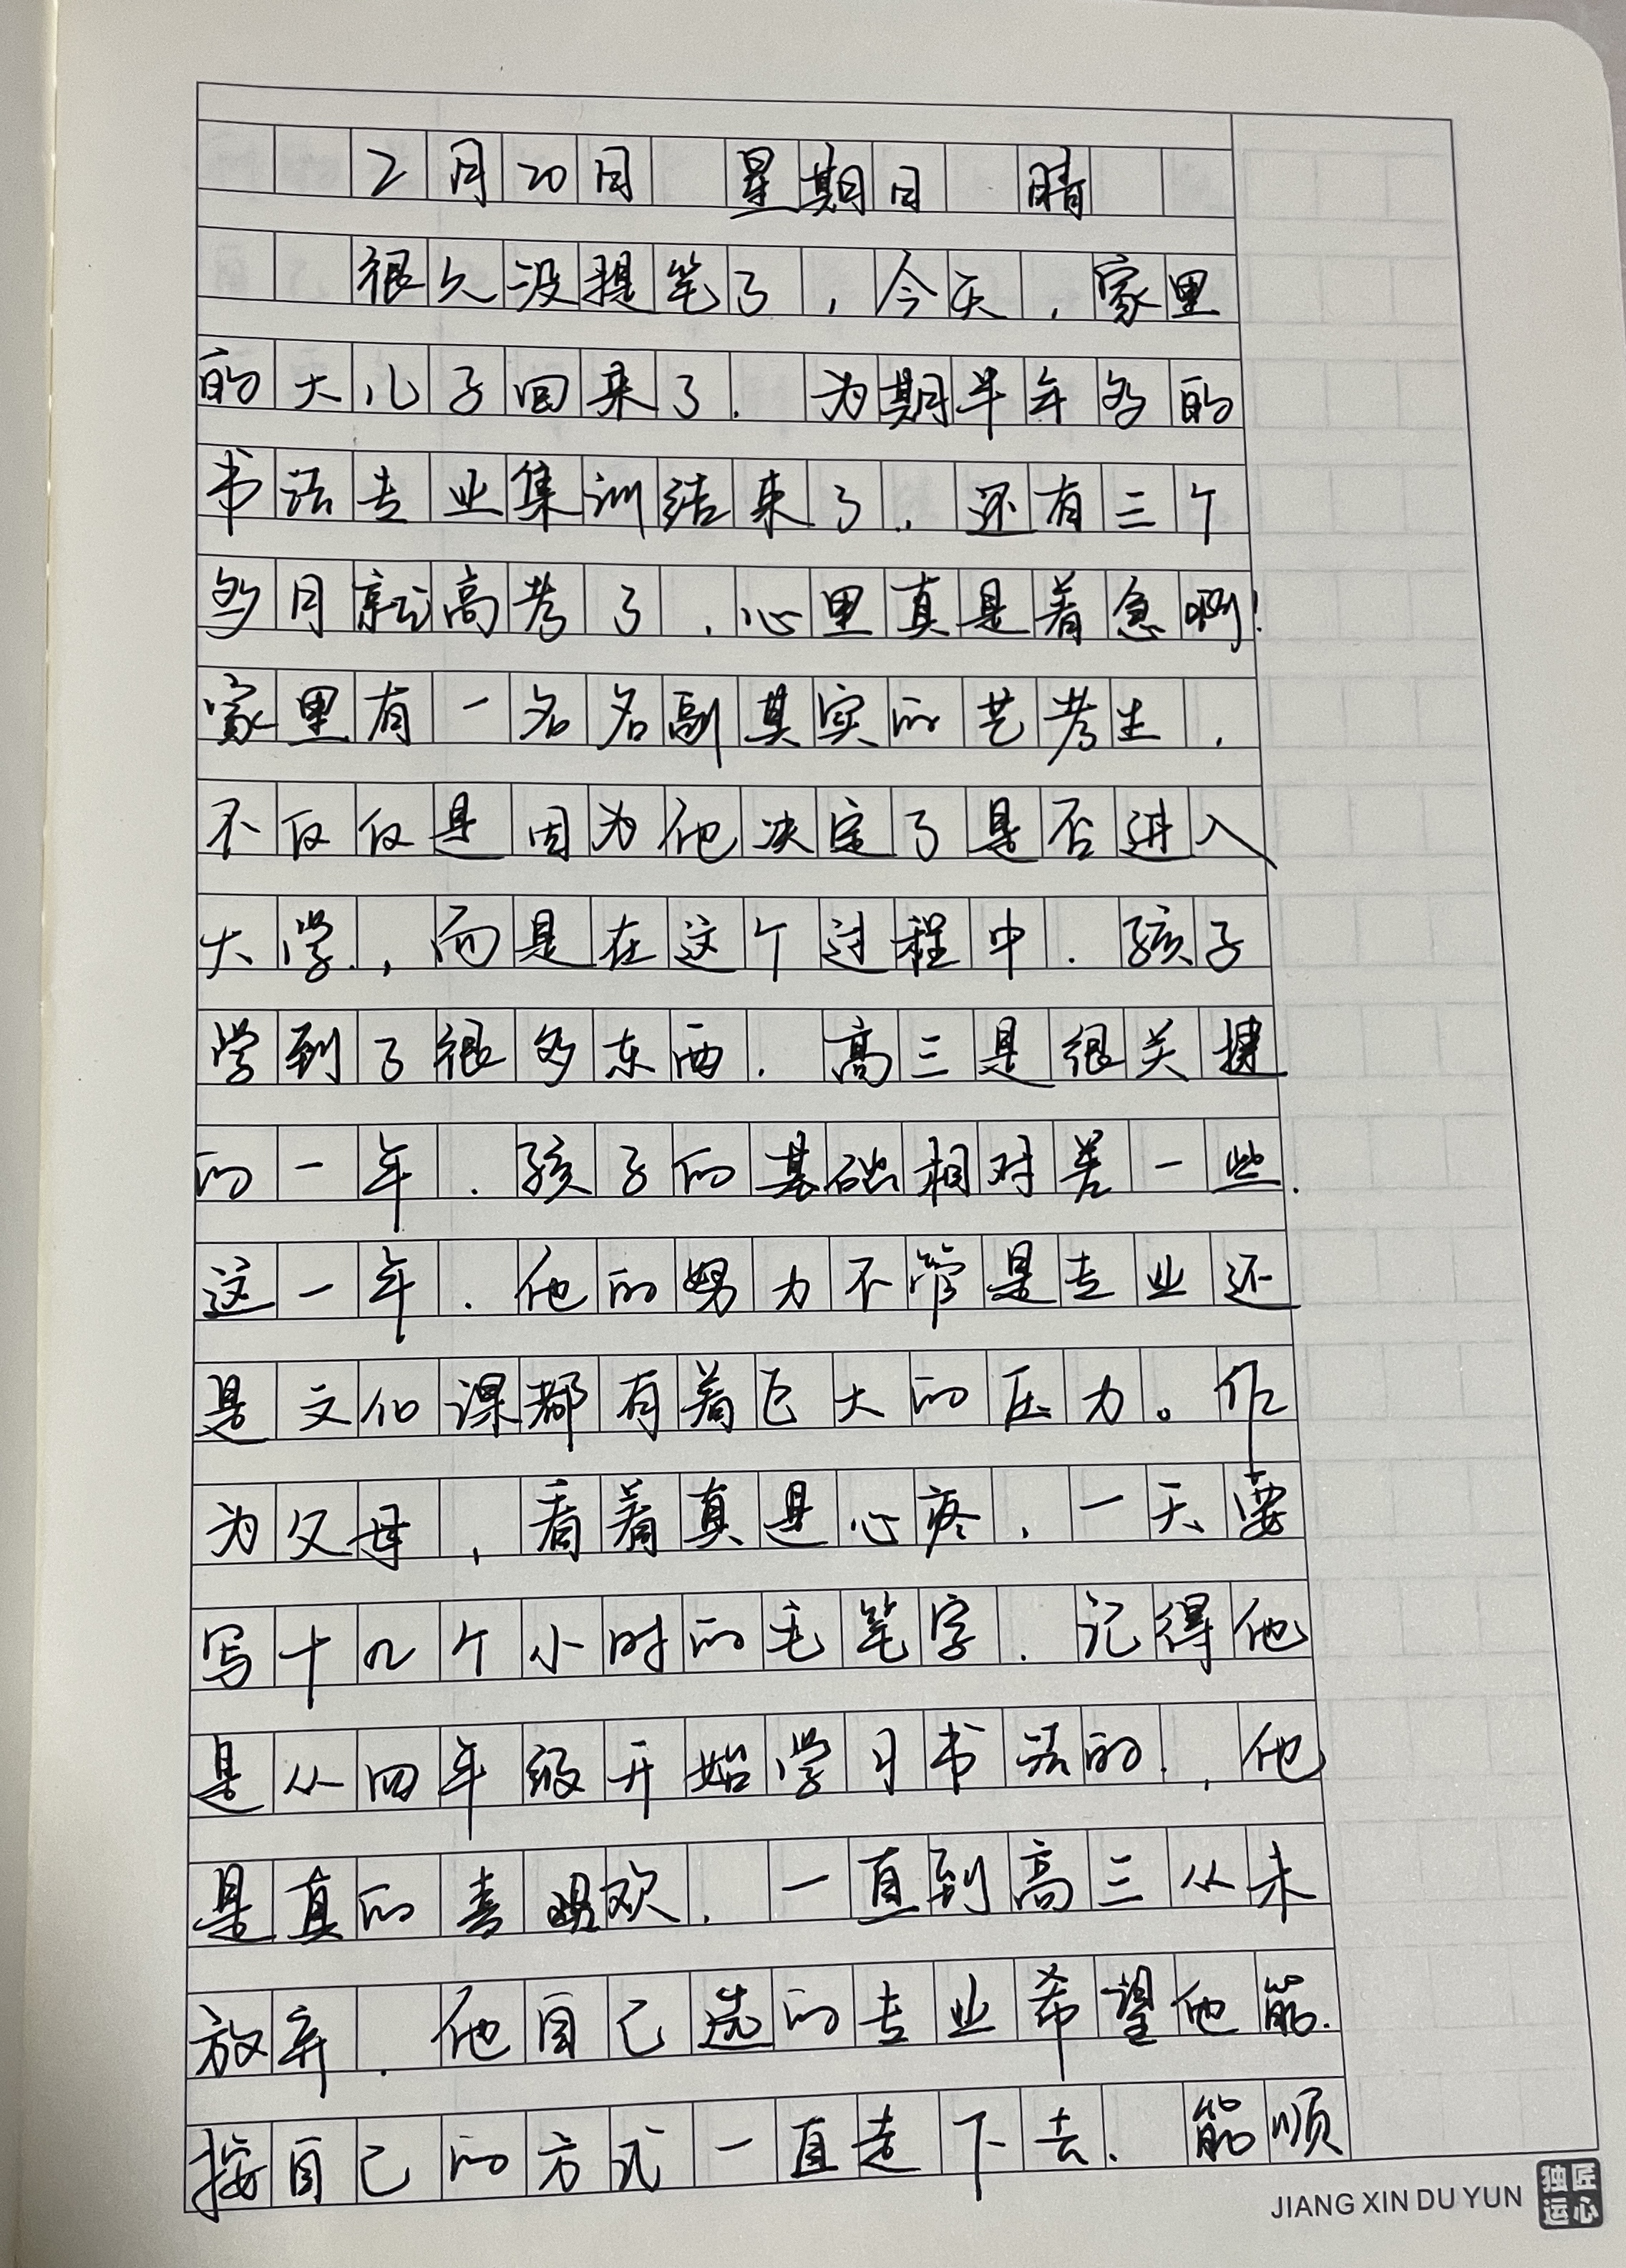 2月20日 星期日 晴
很久没提笔了，今天，家里
的大儿子回来了.为期半年多的
书法专业集训结束了.还有三个
多月就高考了，心里真是着急啊!
家里有一名名副其实的艺考生，
不仅仅是因为他决定了是否进入
大学，而是在这个过程中.孩子
学到了很多东西.高三是很关键
的一年.孩子的基础相对差一些.
这一年.他的努力不管是专业还
是文化课都有着巨大的压力。作
为父母，看着真是心疼，一天要
写十几个小时的毛笔字.记得他
是从四年级开始学习书法的.，他
是真的喜欢.一直到高三从未
放弃.他自己选的专业希望他能.
按自己的方式一直走下去.能顺
JIANG XIN DU YUN
独匠
运心